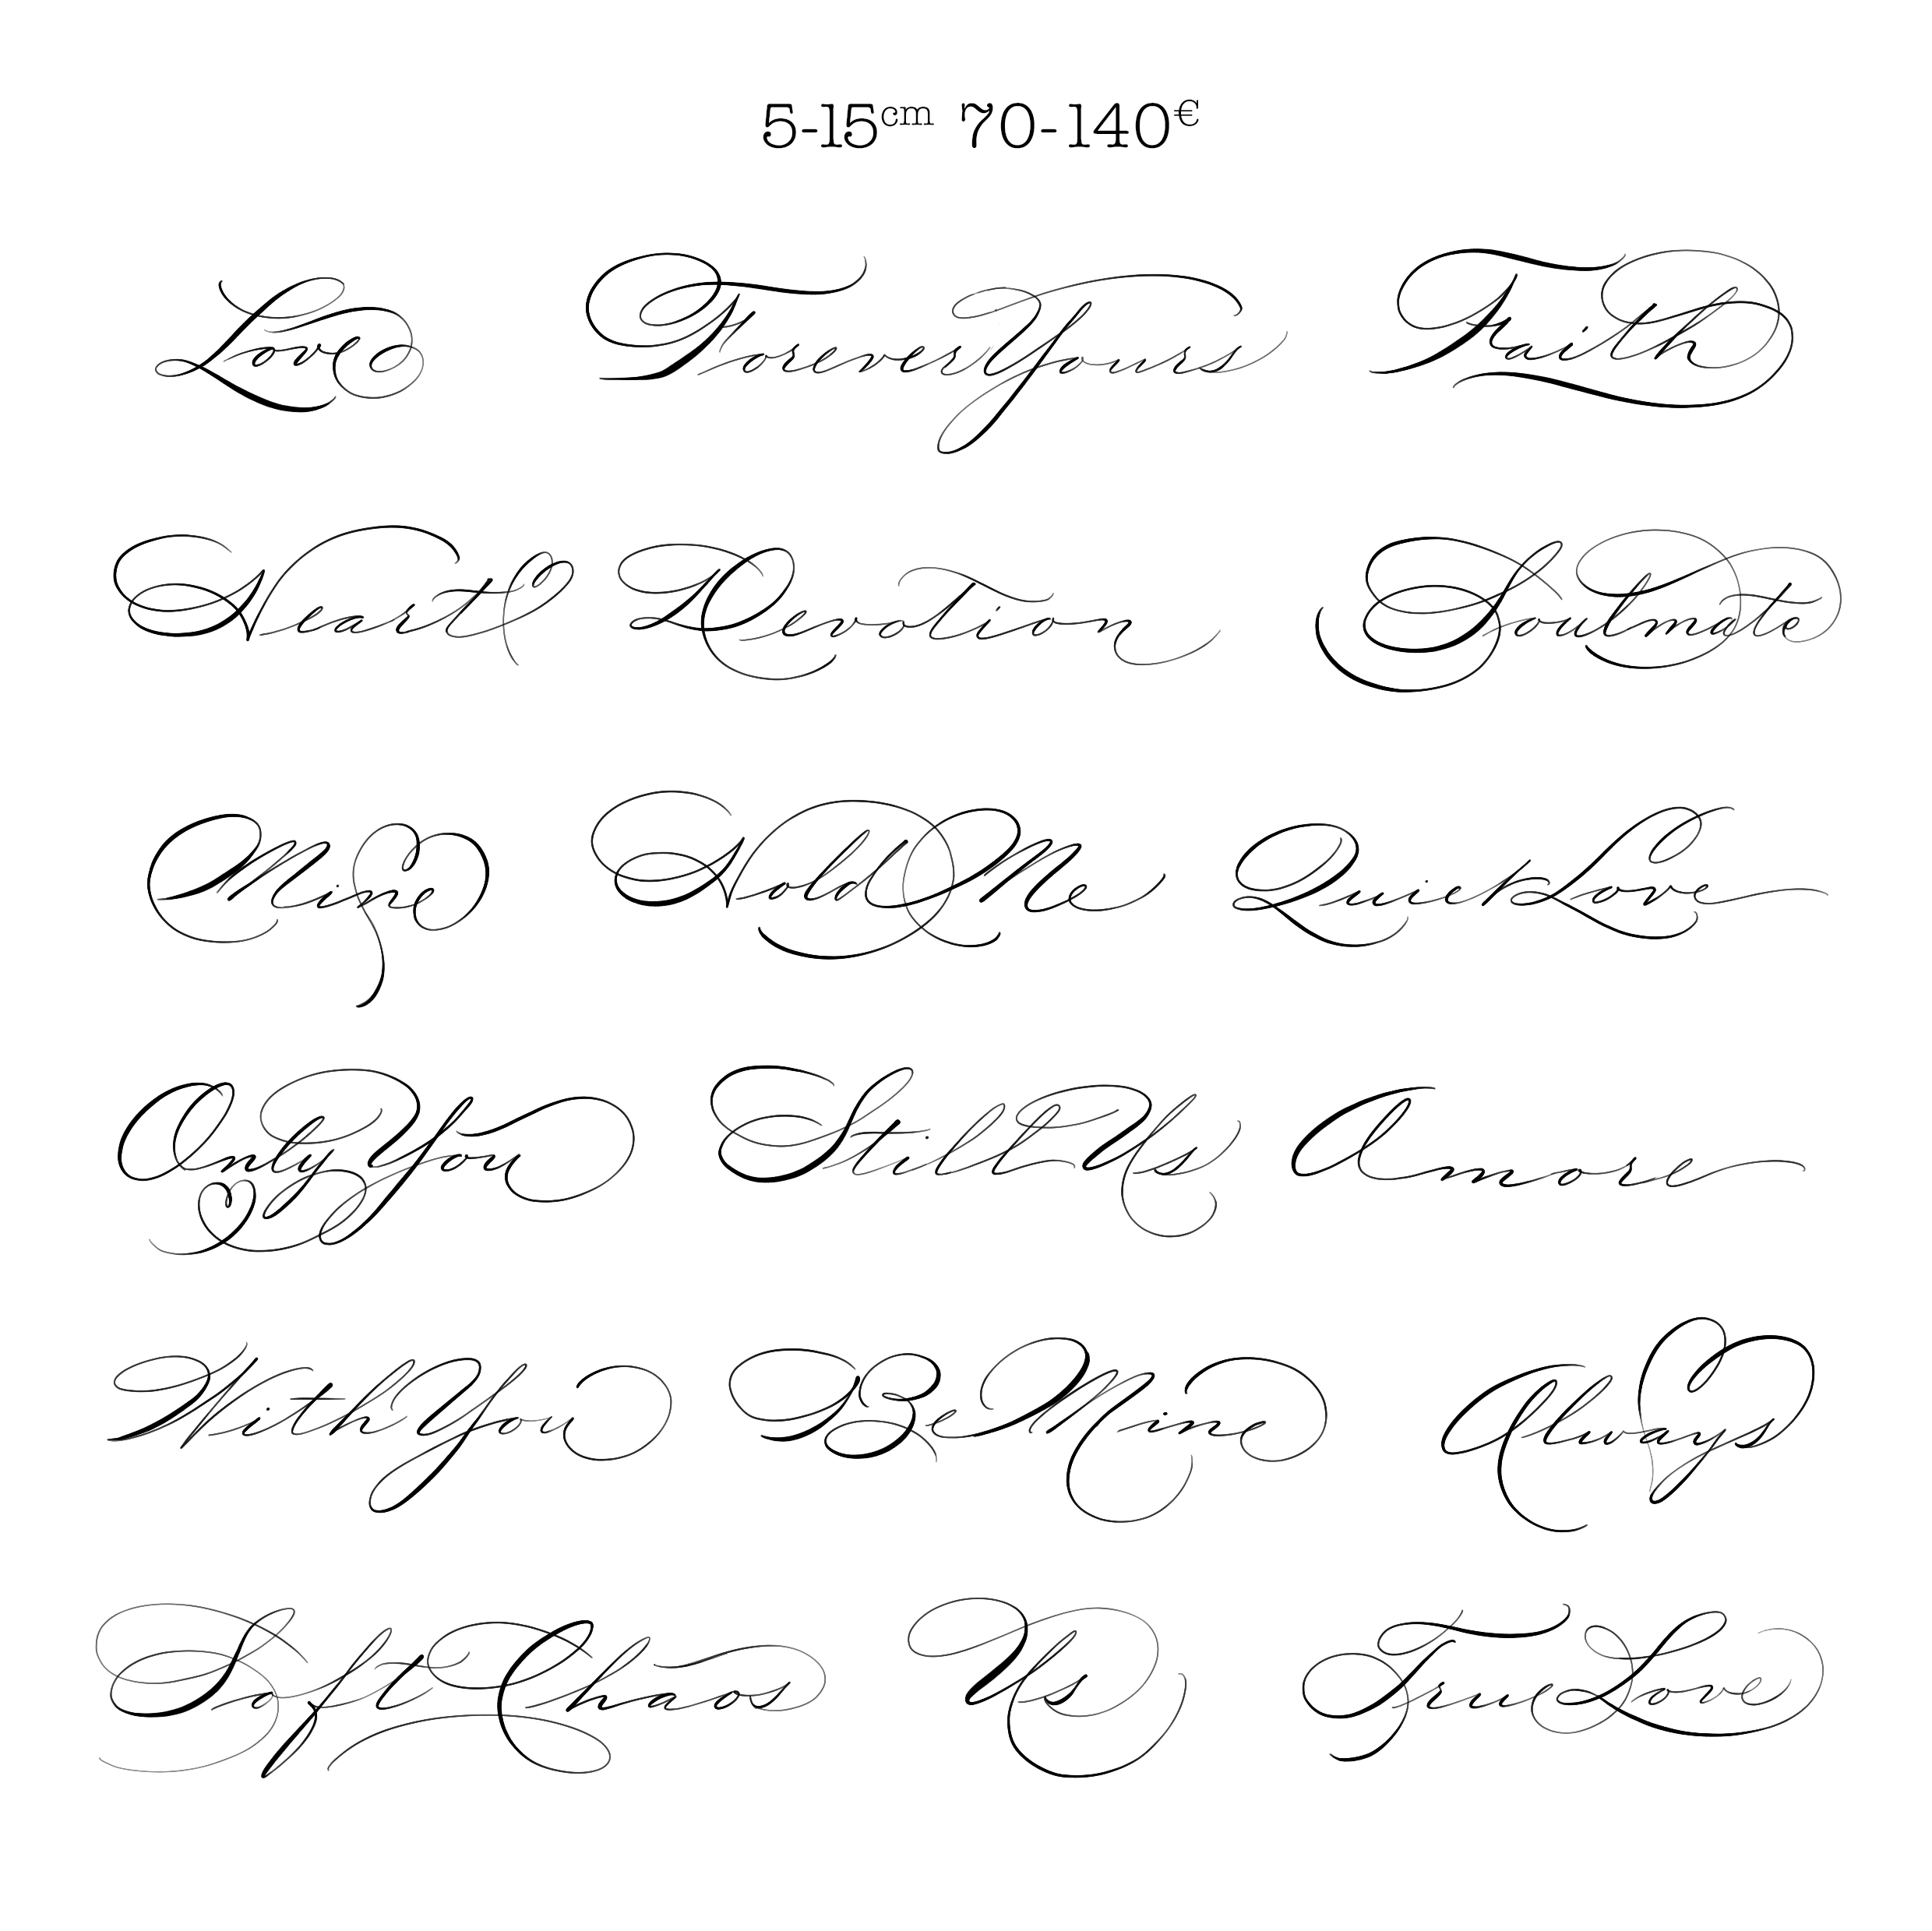 5-15cm 70-140€
Love Forever Yours Faith
Heart Devotion Soulmate
Mine Hold Me Quick Love
Only You Still Us Amore
With You Be Mine Always
Soft Chaos Us True Love